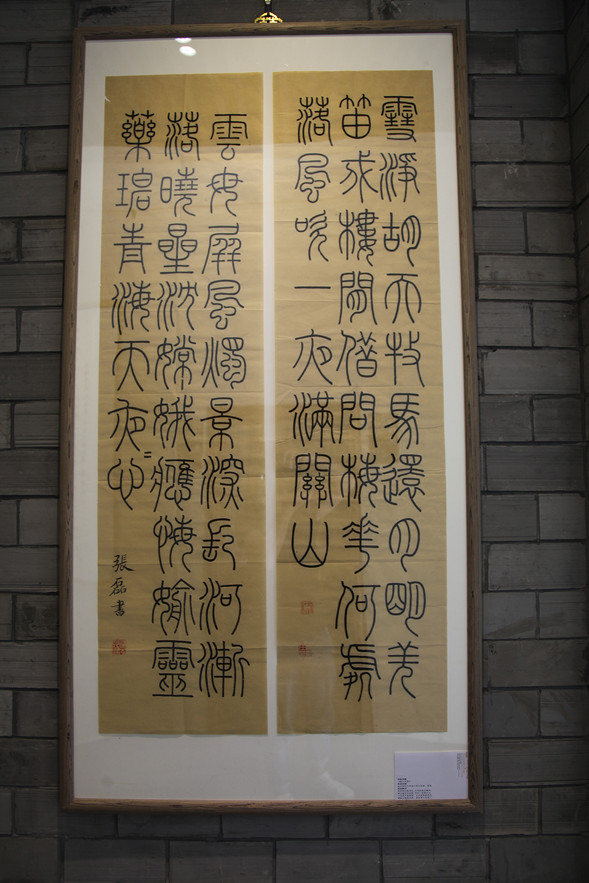 雪淨胡天牧馬還月明羌
笛戍樓閒借問梅華何處
落風吹一夜滿關山
雲母屏風燭景深長河漸
落曉星沈嫦娥應悔媮靈
藥碧青海天夜=心
張磊書